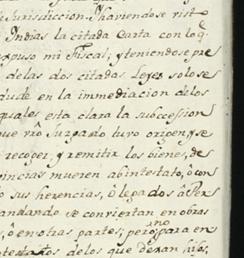 Jurisdiccion. Haviendose visto
Indias la citada Carta con lo q.e
expuso mi Fiscal; y teniendose pre
de las dos citadas Leyes solo se
dude en la immediacion de los
quales esta clara la subccession
que vio Juzgado tuvo origen, y se
recoger, y remitir los bienes, de
vincias mueren abintestato, ò con
o sus herencias, ò legados à Per
andando se conviertan en obras
s, ò en otras partes; pero no para en
otestatos de los que dexan hijos,